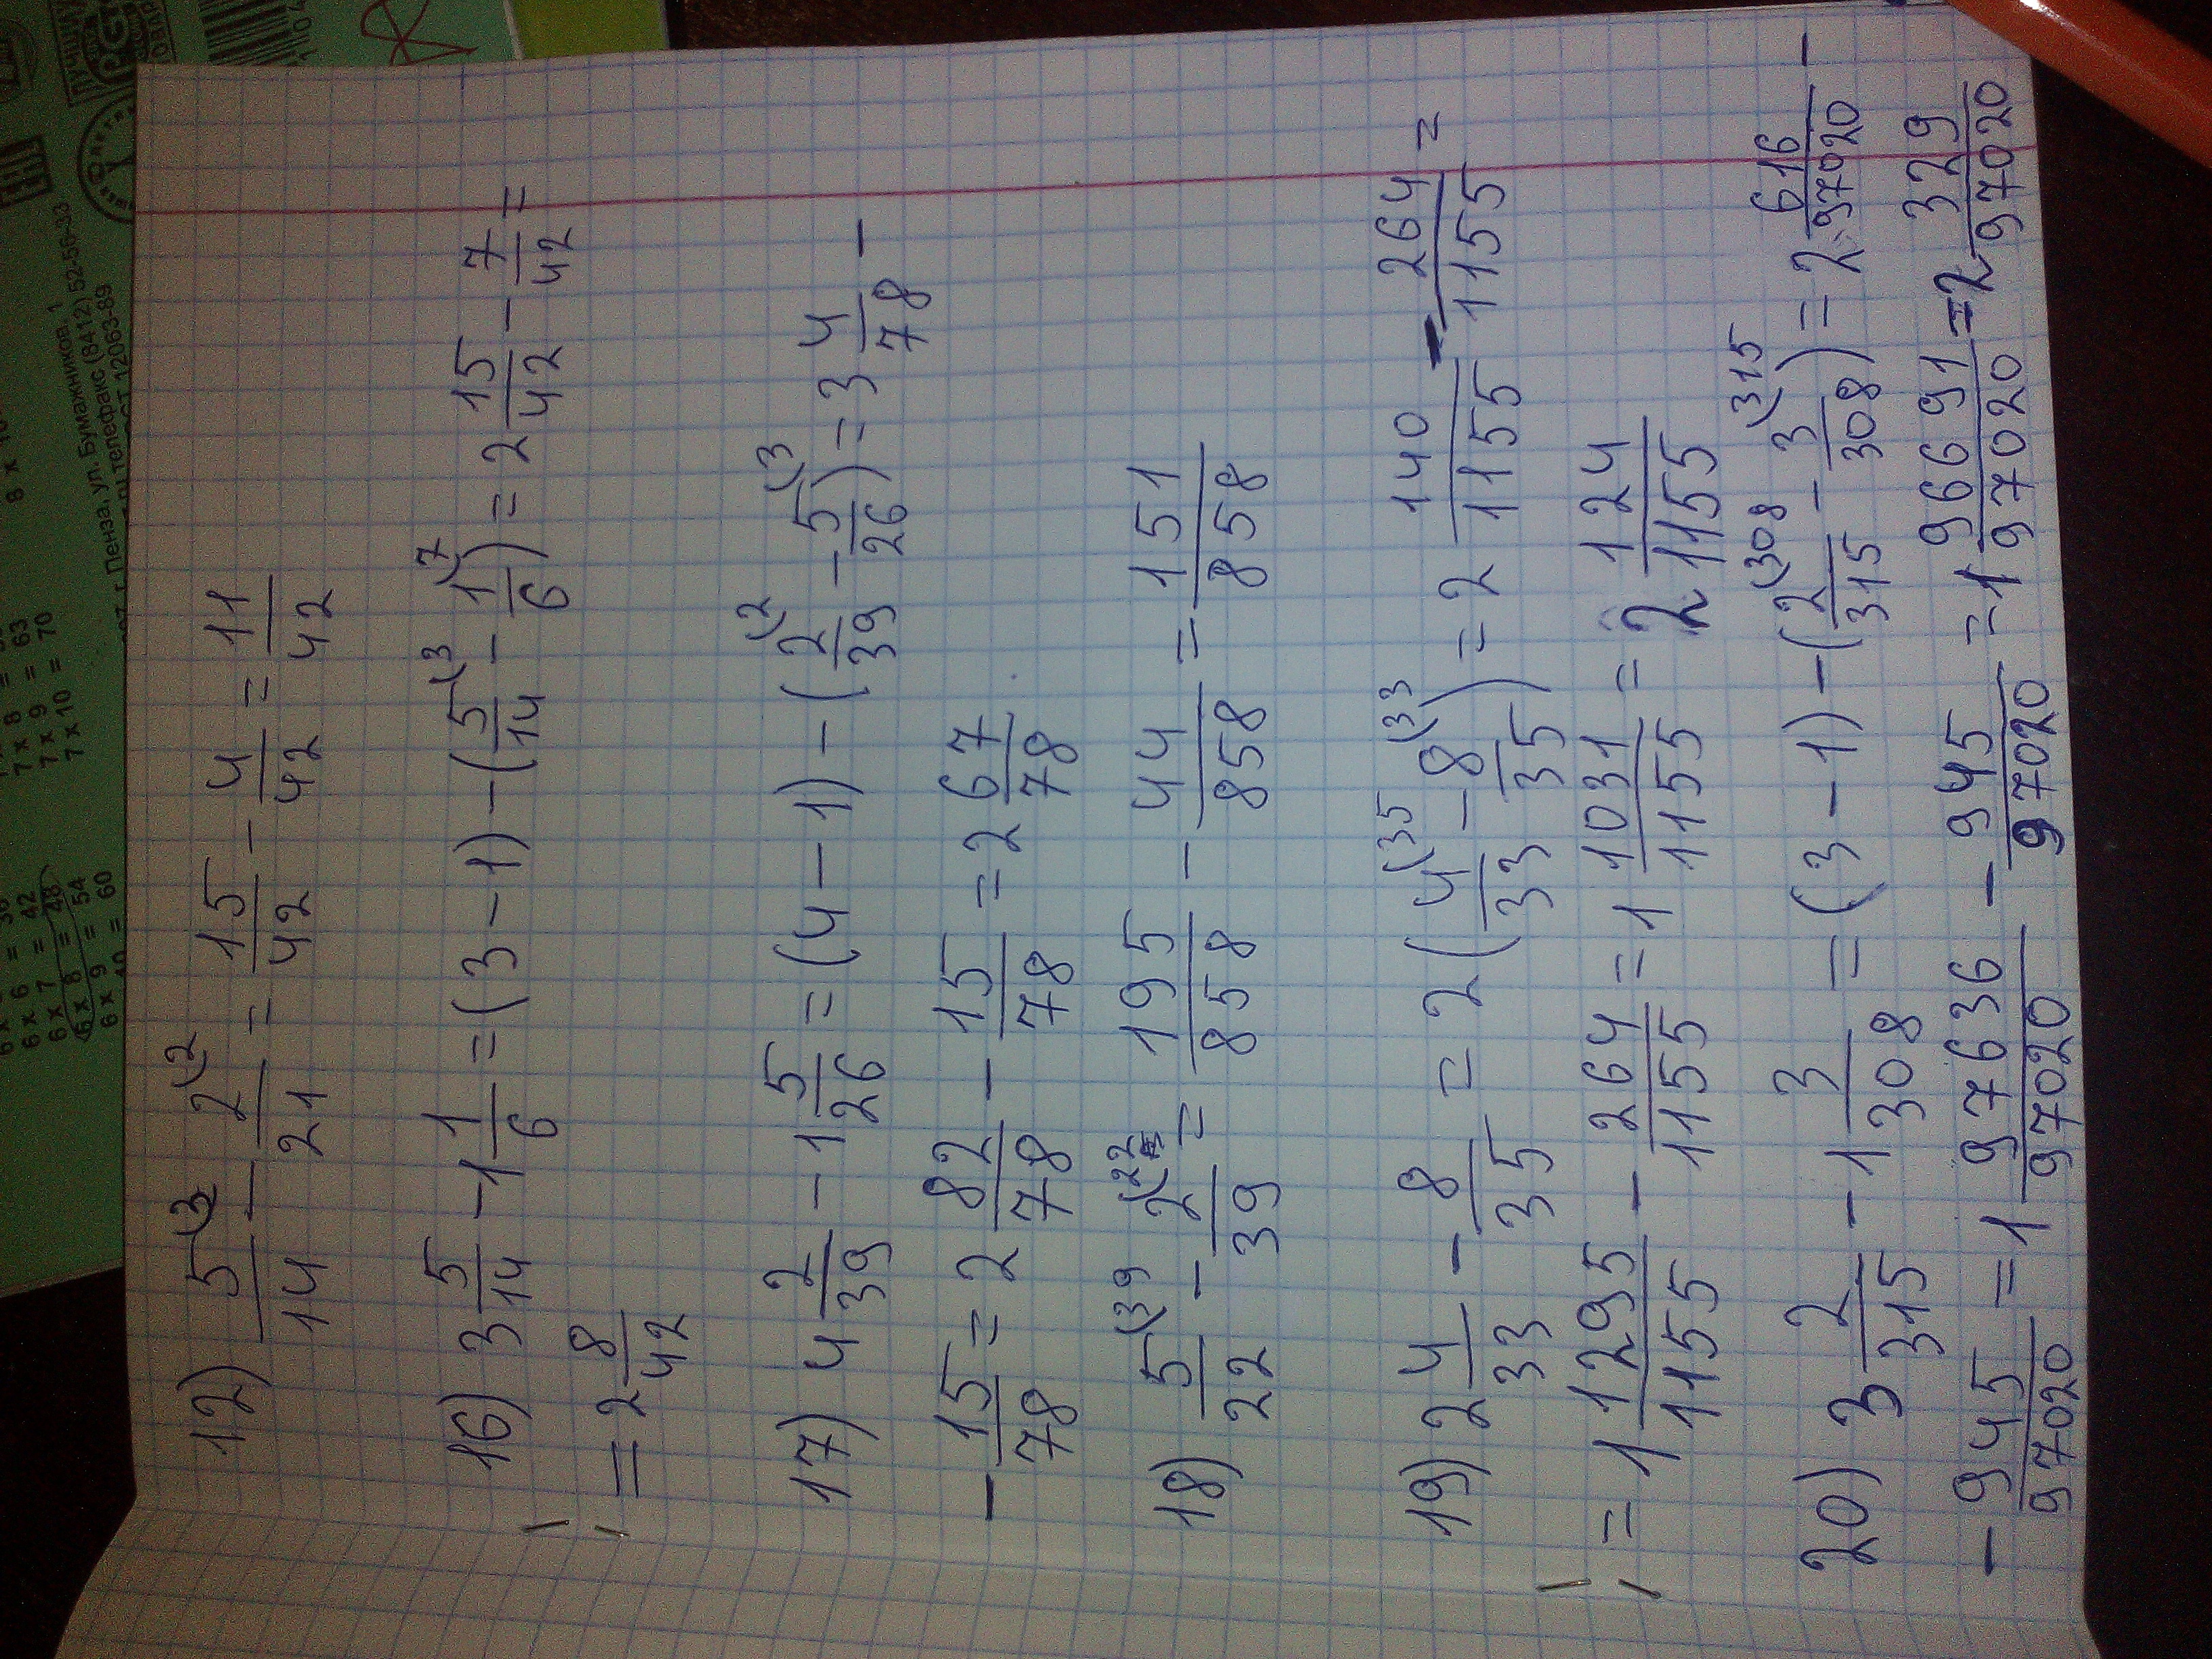 12) 5(3/14 - 2(2/21 = 15/42 - 4/42 = 11/42
16) 3 5/14 - 1 1/6 = (3 - 1) - (5(3/14 - 1(7/6) = 2 15/42 - 7/42 =
= 2 8/42
17) 4 2/39 - 1 5/26 = (4 - 1) - (2(2/39 - 5(3/26) = 3 4/78 -
- 15/78 = 2 82/78 - 15/78 = 2 67/78
18) 5(39/22 - 2(22/39 = 195/858 - 44/858 = 151/858
19) 2 4/33 - 8/35 = 2(4(35/33 - 8(33/35) = 2 140/1155 - 264/1155 =
= 1 1295/1155 - 264/1155 = 1 1031/1155 = 2 124/1155
20) 3 2/315 - 1 3/308 = (3 - 1) - (2(308/315 - 3(315/308) = 2 616/97020 -
- 945/97020 = 1 97636/97020 - 945/97020 = 1 96691/97020 = 2 329/97020
7 x 8
7 x 9 = 63
7 x 10 = 70
6 x 6 = 36
6 x 7 = 42
6 x 8 = 48
6 x 9 = 54
6 x 10 = 60
г. Пенза, ул. Бумажников, 1
телефакс (8412) 52-56-33
ГОСТ 12063-89